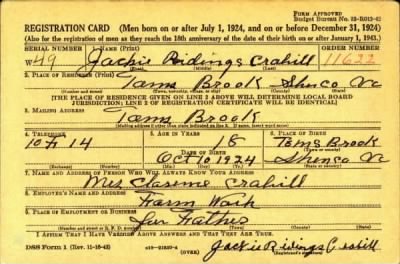 FORM APPROVED
Budget Bureau No. 33-R012-42
REGISTRATION CARD (Men born on or after July 1, 1924, and on or before December 31, 1924)
(Also for the registration of men as they reach the 18th anniversary of the date of their birth on or after January 1, 1943.)
SERIAL NUMBER 1. NAME (Print) ORDER NUMBER
W 49 Jackie Ridings Crabill 11622
(First) (Middle) (Last)
2. PLACE OF RESIDENCE (Print)
Toms Brook Shenco Va
[THE PLACE OF RESIDENCE GIVEN ON LINE 2 ABOVE WILL DETERMINE LOCAL BOARD
JURISDICTION; LINE 2 OF REGISTRATION CERTIFICATE WILL BE IDENTICAL]
3. MAILING ADDRESS
Toms Brook
4. TELEPHONE 5. AGE IN YEARS 6. PLACE OF BIRTH
10F14 18 Toms Brook
DATE OF BIRTH
Oct 10 1924 Shenco Va
(Exchange) (Number) (Mo.) (Day) (Yr.) (State or country)
7. NAME AND ADDRESS OF PERSON WHO WILL ALWAYS KNOW YOUR ADDRESS
Mrs Crabill
8. EMPLOYER'S NAME AND ADDRESS
Farm Work
9. PLACE OF EMPLOYMENT OR BUSINESS
Father
I AFFIRM THAT I HAVE VERIFIED ABOVE ANSWERS AND THAT THEY ARE TRUE.
DSS Form 1 (Rev. 11-16-42) (OVER) Jackie Ridings Crabill
(Registrant's signature)